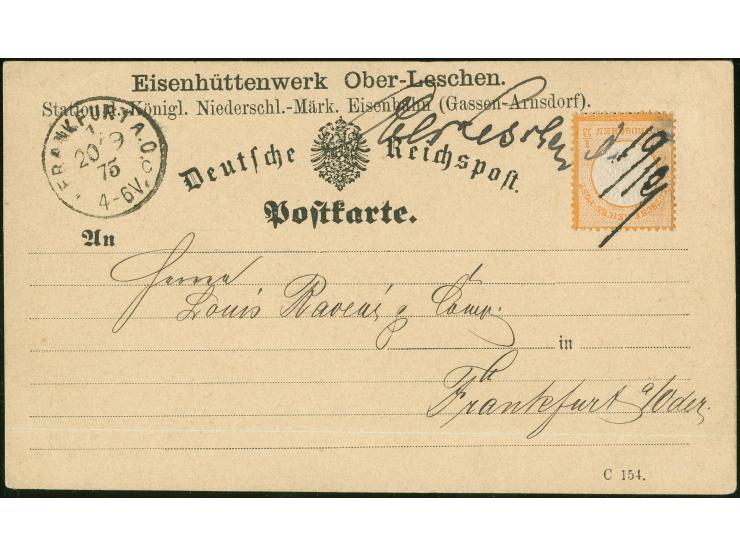 Eisenhüttenwerk Ober-Leschen.
Station d. Königl. Niederschl.-Märk. Eisenbahn (Gassen-Arnsdorf).
Ober Leschen
19/9
FRANKFURT A.O.
20 9
75
4-6V
Deutsche Reichspost.
Postkarte.
GROSCHEN
An
Herren
Louis Ravené & Comp.
in
Frankfurt a/Oder.
C 154.